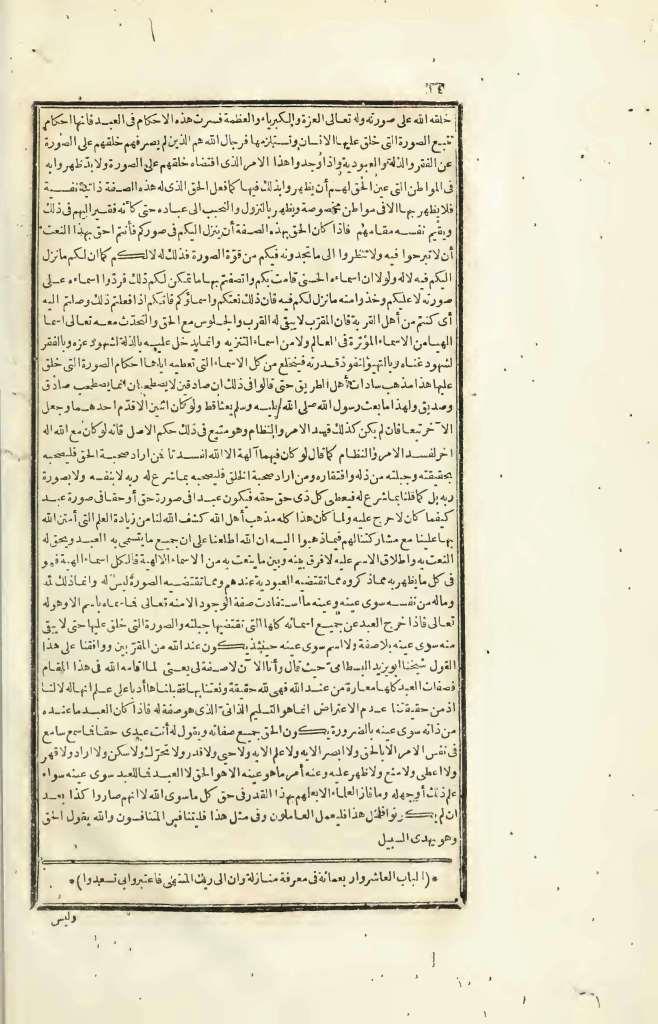 ١٤
خلقه الله على صورته وله تعالى العزة والكبرياء والعظمة فسرت هذه الاحكام فى العبد فانها احكام
تتبع الصورة التى خلق عليها الانسان وتستلزمها فرجال الله هم الذين لم يصرفهم خلقهم على الصورة
عن الفقر والذلة والعبودية واذا وجدوا هذا الامر الذى اقتضاه خلقهم على الصورة ولا بد ظهروا به
فى المواطن التى عين الحق لهم أن يظهروا بذلك فيها كما فعل الحق الذى له هذه الصفة ذاتية نفسية
فلا يظهر بها الا فى مواطن مخصوصة ويظهر بالنزول والتحبب الى عباده حتى كأنه فقير اليهم فى ذلك
ويقيم نفسه مقامهم فاذا كان الحق بهذه الصفة أن ينزل اليكم فى صوركم فأنتم احق بهذا النعت
أن لا تبرحوا فيه ولا تنظروا الى ما تجدونه فيكم من قوة الصورة فذلك له لا لكم كما ان لكم ما نزل
اليكم فيه لا له ولولا ان اسماءه الحسنى قامت بكم واتصفتم بها ما تمكن لكم ذلك فردّوا اسماءه على
صورته لا عليكم وخذوا منه ما نزل لكم فيه فان ذلك نعتكم واسماؤكم فانكم اذا فعلتم ذلك وصلتم اليه
أى كنتم من أهل القربة فان المقرّب لا يبقى له القرب والجلوس مع الحق والتحدث معه تعالى اسما
الهيا من الاسماء المؤثرة فى العالم ولا من اسماء التنزيه وانما يدخل عليه بالذلة لشهود عزه وبالفقر
لشهود غناه وبالتهيؤ لنفوذ قدرته فينخلع من كل الاسماء التى تعطيه اياها احكام الصورة التى خلق
عليها هذا مذهب سادات أهل الطريق حتى قالوا فى ذلك ان صادقين لا يصطحبان انما يصطحب صادق
وصديق ولهذا ما بعث رسول الله صلى الله عليه وسلم بعثا قط ولو كان اثنين الا قدّم احدهما وجعل
الآخر تبعا فان لم يكن كذلك فسد الامر والنظام وهو متبع فى ذلك حكم الاصل فانه لو كان مع الله اله
اخر لفسد الامر والنظام كما قال لو كان فيهما آلهة الا الله لفسدتا فمن اراد صحبة الحق فليصحبه
بحقيقته وجبلته من ذله وافتقاره ومن اراد صحبة الخلق فليصحبه بما شرع له ربه لا بنفسه ولا بصورة
ربه بل كما قلنا بما شرع له فيعطى كل ذى حق حقه فيكون عبدا فى صورة حق أو حقا فى صورة عبد
كيفما كان لا حرج عليه ولما كان هذا كله مذهب أهل الله كشف الله لنا من زيادة العلم التى أمتن الله
بها علينا مع مشاركتنا لهم فيما ذهبوا اليه ان الله اطلعنا على ان جميع ما يتسمى به العبد ويحق له
النعت به واطلاق الاسم عليه لا فرق بينه وبين ما ينعت به من الاسماء الالهية فالكل اسماء الهية فهو
فى كل ما يظهر به مما ذكروه مما تقتضيه العبودية عندهم ومما تقتضيه الصورة ليس له وانما ذلك لله
وماله من نفسه سوى عينه وعينه ما استفادت صفة الوجود الا منه تعالى فما سماه باسم الا وهو له
تعالى فاذا خرج العبد عن جميع اسمائه كلها التى تقتضيها جبلته والصورة التى خلق عليها حتى لا يبقى
منه سوى عينه بلا صفة ولا اسم سوى عينه حينئذ يكون عند الله من المقرّبين ووافقنا على هذا
القول شيخنا ابو يزيد البسطامى حيث قال وأنا الآن لا صفة لى يعنى لما اقامه الله فى هذا المقام
فصفات العبد كلها معارة من عند الله فهى لله حقيقة ونعتنا بها فقبلناها أدبا على علم انها له لا لنا
اذ من حقيقتنا عدم الاعتراض انما هو التسليم الذاتى الذى هو صفة له فاذا كان العبد ما عنده
من ذاته سوى عينه بالضرورة يكون الحق جميع صفاته ويقول له أنت عبدى حقا فما سمع سامع
فى نفس الامر الا بالحق ولا ابصر الا به ولا علم الا به ولا حي ولا قدر ولا تحرّك ولا سكن ولا اراد ولا قهر
ولا اعطى ولا منع ولا ظهر عليه وعنه أمر ما هو عينه الا هو الحق لا العبد فما للعبد سوى عينه سواء
علم ذلك أو جهله وما فاز العلماء الا بعلمهم بهذا القدر فى حق كل ما سوى الله لا انهم صاروا كذا بعد
ان لم يكونوا فلمثل هذا فليعمل العاملون وفى مثل هذا فليتنافس المتنافسون والله يقول الحق
وهو يهدى السبيل
* (الباب العاشر واربعمائة فى معرفة منازلة وان الى ربك المنتهى فاعتبروا بى تسعدوا) *
وليس